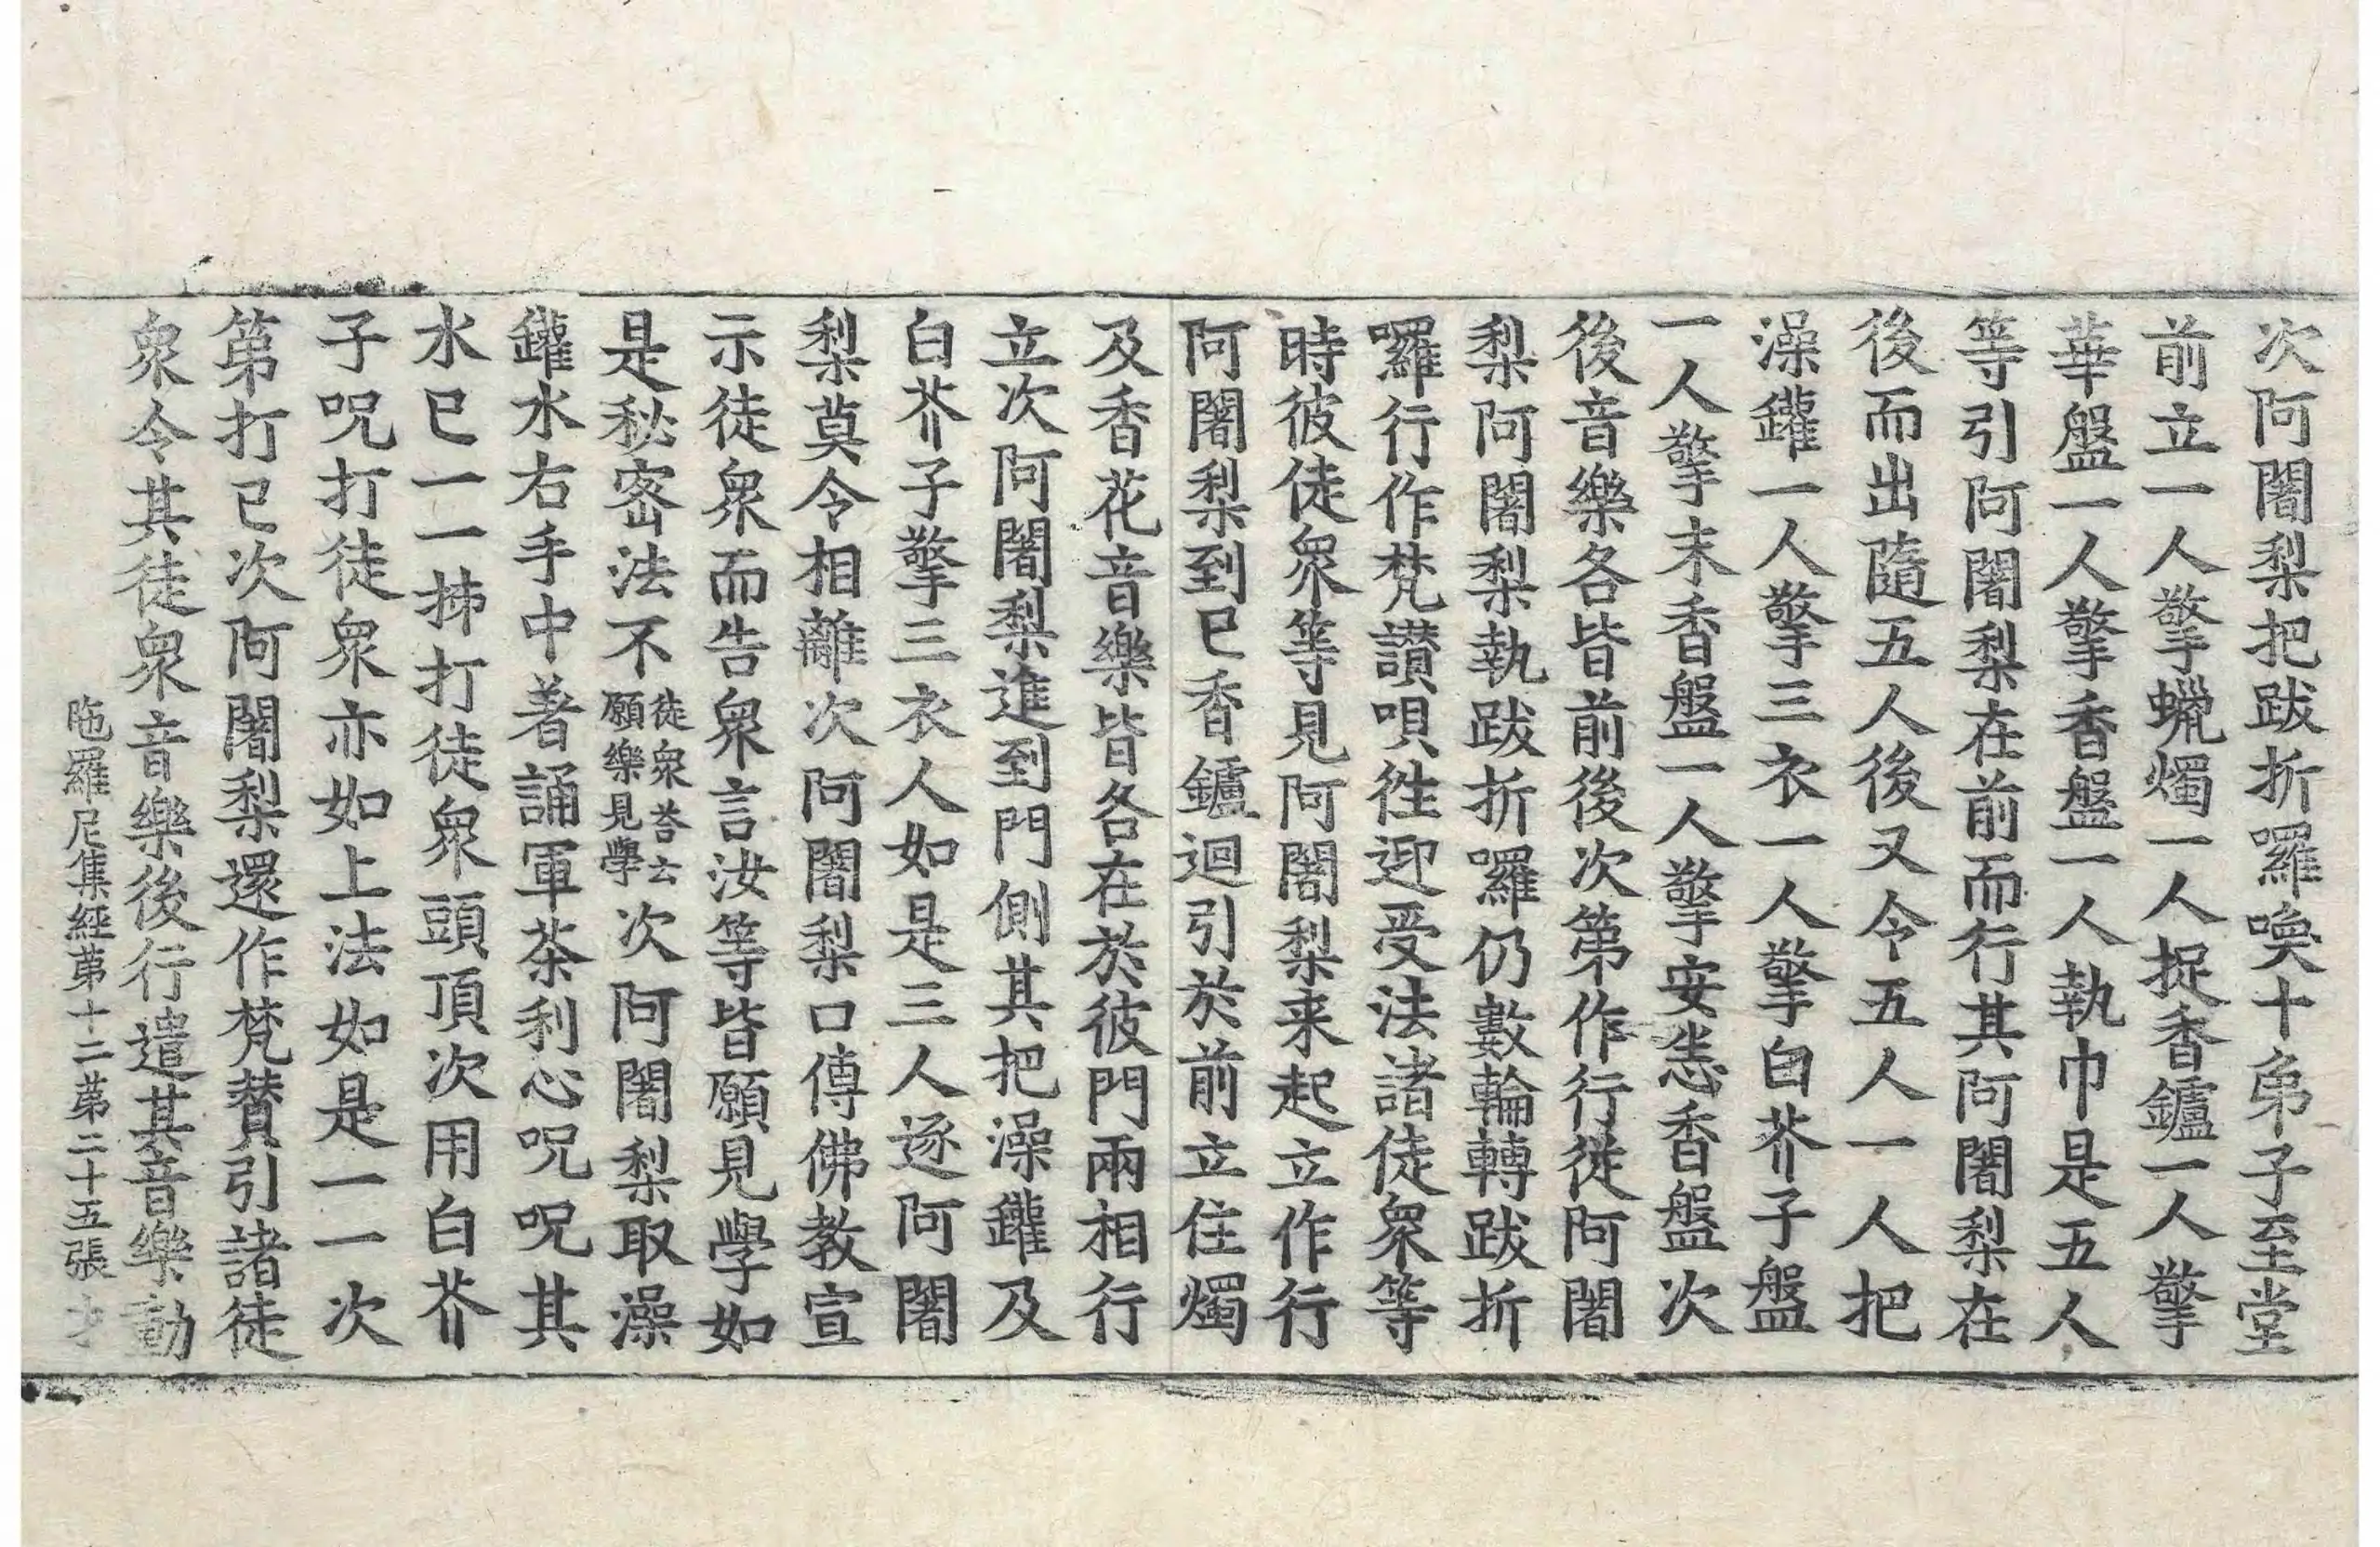 次阿闍梨把跋折囉喚十弟子至堂
前立一人擎蠟燭一人捉香鑪一人擎
華盤一人擎香盤一人執巾是五人
等引阿闍梨在前而行其阿闍梨在
後而出隨五人後又令五人一人把
澡鑵一人擎三衣一人擎白芥子盤
一人擎末香盤一人擎安悉香盤次
後音樂各皆前後次第作行從阿闍
梨阿闍梨執跋折囉仍數輪轉跋折
囉行作梵讃唄徃迎受法諸徒衆等
時彼徒衆等見阿闍梨来起立作行
阿闍梨到已香鑪迴引於前立住燭
及香花音樂皆各在於彼門兩相行
立次阿闍梨進到門側其把澡鑵及
白芥子擎三衣人如是三人逐阿闍
梨莫令相離次阿闍梨口傳佛教宣
示徒衆而告衆言汝等皆願見學如
是秘密法不徒衆荅云願樂見學次阿闍梨取澡
鑵水右手中著誦軍荼利心呪呪其
水已一一拂打徒衆頭頂次用白芥
子呪打徒衆亦如上法如是一一次
第打已次阿闍梨還作梵賛引諸徒
衆令其徒衆音樂後行遣其音樂動
陁羅尼集經苐十二苐二十五張